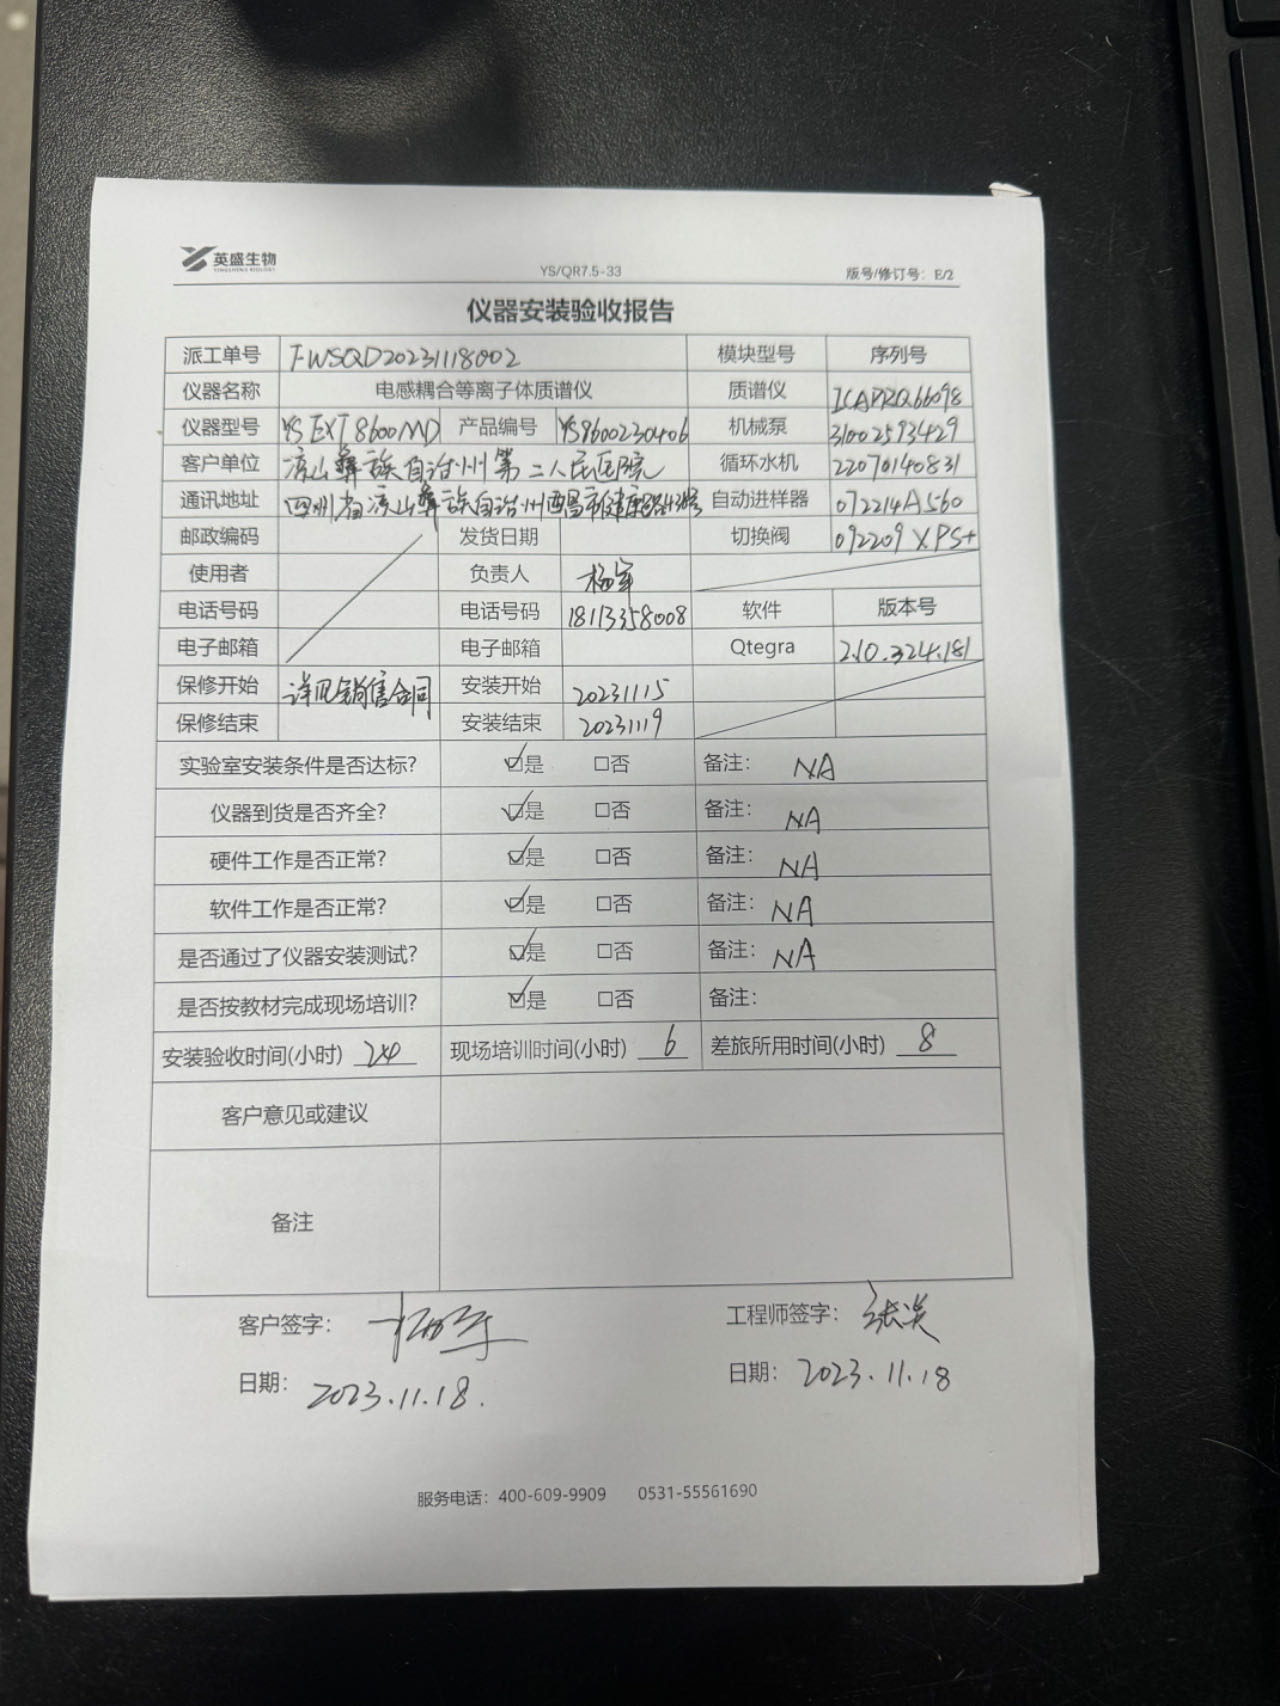 英盛生物
YINGSHENG BIOLOGY
YS/QR7.5-33
版号/修订号：E/2
仪器安装验收报告
派工单号 FWSQD20231118002 模块型号 序列号
仪器名称 电感耦合等离子体质谱仪 质谱仪 ICAPRQ66098
仪器型号 YS EXT 8600MD 产品编号 YS8600230406 机械泵 31002593429
客户单位 凉山彝族自治州第二人民医院 循环水机 22070140831
通讯地址 四川省凉山彝族自治州西昌市健康路 自动进样器 072214A560
邮政编码 发货日期 切换阀 092209XPS+
使用者 负责人 杨军
电话号码 电话号码 18113358008 软件 版本号
电子邮箱 电子邮箱 Qtegra 2.10.324.181
保修开始 详见销售合同 安装开始 20231115
保修结束 安装结束 20231119
实验室安装条件是否达标? ☑是 □否 备注： NA
仪器到货是否齐全? ☑是 □否 备注： NA
硬件工作是否正常? ☑是 □否 备注： NA
软件工作是否正常? ☑是 □否 备注： NA
是否通过了仪器安装测试? ☑是 □否 备注： NA
是否按教材完成现场培训? ☑是 □否 备注：
安装验收时间(小时) 24 现场培训时间(小时) 6 差旅所用时间(小时) 8
客户意见或建议
备注
客户签字： 工程师签字：
日期： 2023.11.18. 日期： 2023.11.18
服务电话：400-609-9909 0531-55561690